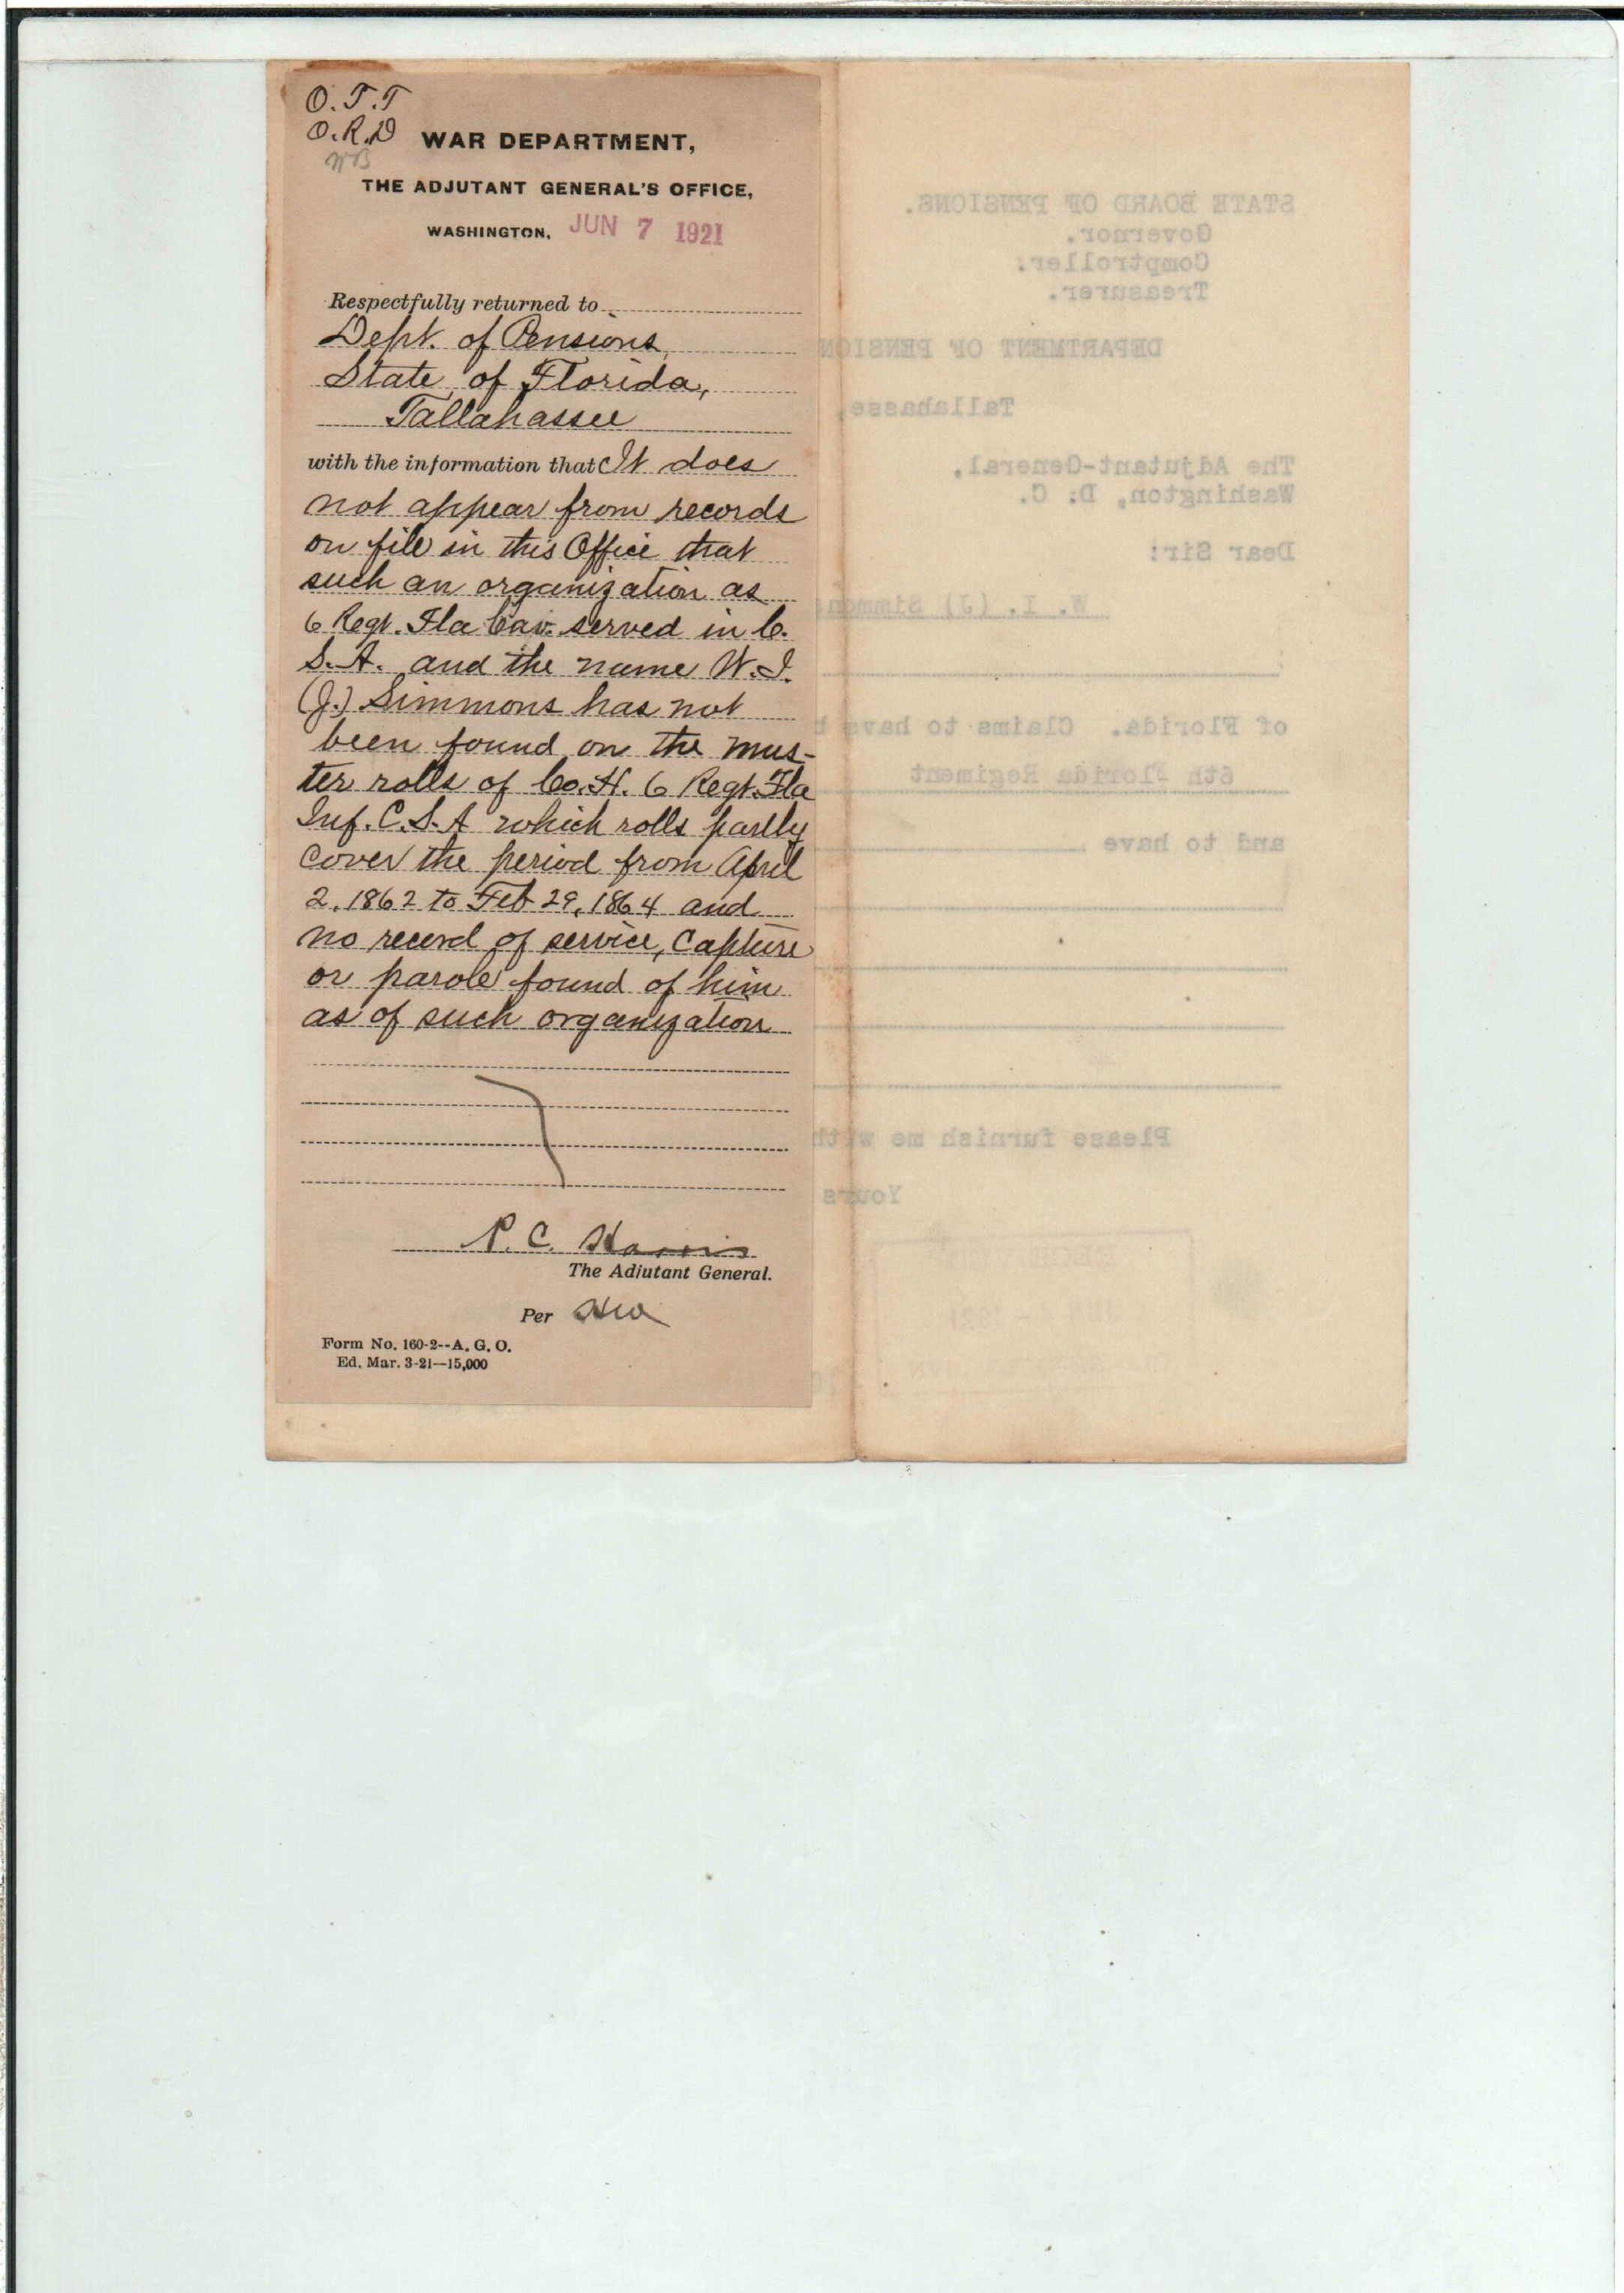 O.T.T
O.R.D
WB
WAR DEPARTMENT,
THE ADJUTANT GENERAL'S OFFICE,
WASHINGTON, JUN 7 1921
Respectfully returned to
Dept. of Pensions,
State of Florida,
Tallahassee
with the information that It does
not appear from records
on file in this Office that
such an organization as
6 Regt. Fla Cav. served in C.
S.A. and the name W.I.
(J.) Simmons has not
been found on the mus-
ter rolls of Co. H. 6 Regt. Fla
Inf. C.S.A which rolls partly
cover the period from April
2, 1862 to Feb 29, 1864 and
no record of service, capture
or parole found of him
as of such organization
P. C. Harris
The Adjutant General.
Per
Form No. 160-2--A. G. O.
Ed. Mar. 3-21--15,000
STATE BOARD OF PENSIONS.
Governor.
Comptroller.
Treasurer.
DEPARTMENT OF PENSION
Tallahasse,
The Adjutant-General,
Washington, D. C.
Dear Sir:
W. I. (J) Simmons
of Florida. Claims to have b
6th Florida Regiment
and to have
Please furnish me with
Yours